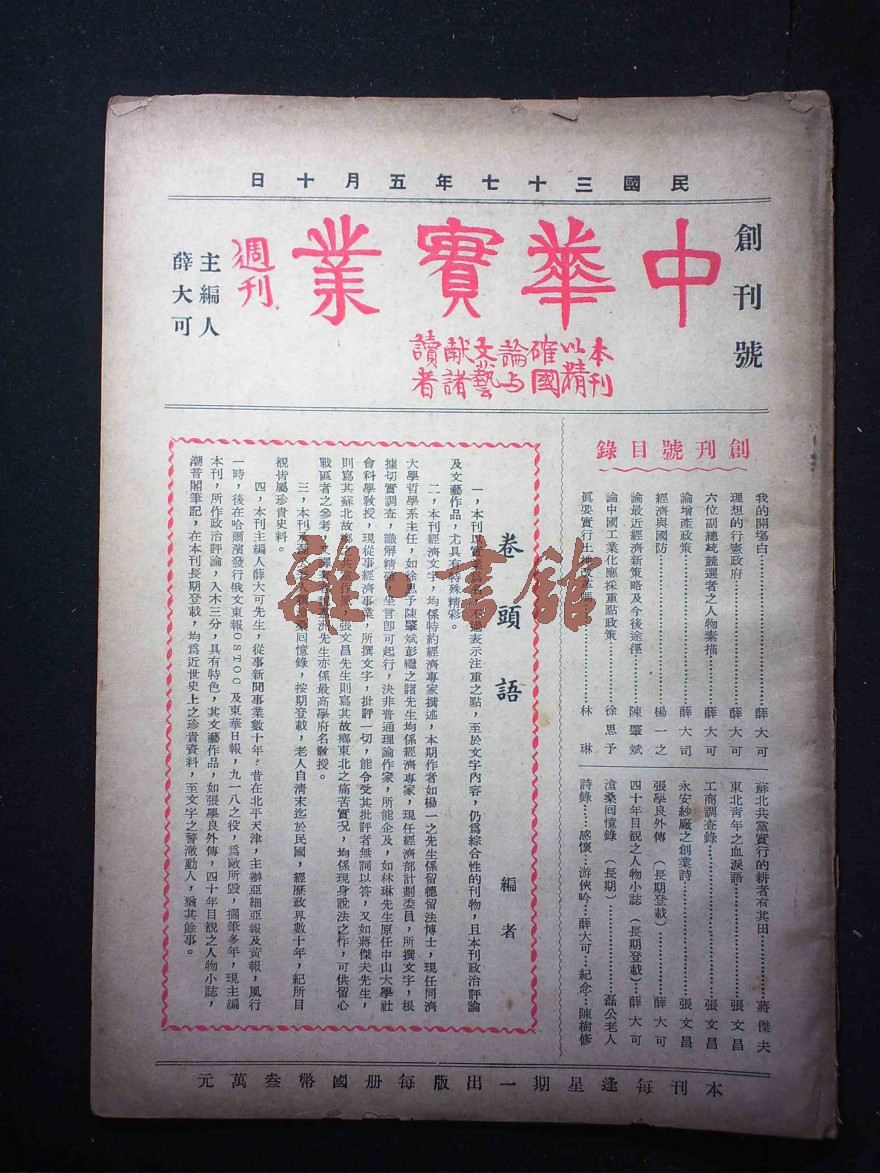 民國三十七年五月十日
創刊號
中華實業
週刊
主編人
薛大可
本刊
以精
確國
論与
文藝
献諸
讀者
創刊號目錄
我的開塲白…………薛大可
理想的行憲政府…………薛大可
六位副總統競選者之人物素描…………薛大可
論增產政策…………薛大司
經濟與國防…………楊一之
論最近經濟新策略及今後途徑…………陳肇斌
論中國工業化應採重點政策…………徐思予
眞要實行土地改革…………林琳
蘇北共黨實行的耕者有其田…………蔣傑夫
東北靑年之血淚語…………張文昌
工商調查錄…………張文昌
永安紗廠之創業詩…………張文昌
張學良外傳(長期登載)…………薛大可
四十年目覩之人物小誌(長期登載)…薛大可
滄桑回憶錄(長期)…………磊公老人
詩錄……感懷…游俠吟…薛大可…紀念…陳樹修
卷頭語
編者
一,本刊以實業爲名,不過表示注重之點,至於文字內容,仍爲綜合性的刊物,且本刊政治評論
及文藝作品,尤具有特殊精彩。
二,本刊經濟文字,均係特約經濟專家撰述,本期作者如楊一之先生係留德留法博士,現任同濟
大學哲學系主任,如徐思予陳肇斌彭繼之諸先生均係經濟專家,現任經濟部計劃委員,所撰文字,根
據切實調查,識解精確,坐言卽可起行,決非普通理論作家,所能企及,如林琳先生原任中山大學社
會科學敎授,現從事經濟事業,所撰文字,批評一切,能令受其批評者無詞以答,又如蔣傑夫先生,
則寫其蘇北故鄉共黨作風,張文昌先生則寫其故鄉東北之痛苦實况,均係現身說法之作,可供留心
戰區者之參考,又譯先生亦係最高學府名敎授。
三,本刊老人滄桑回憶錄,按期登載,老人自清末迄於民國,經歷政界數十年,紀所目
覩皆屬珍貴史料。
四,本刊主編人薛大可先生,從事新聞事業數十年,昔在北平天津,主辦亞細亞報及黃報,風行
一時,後在哈爾濱發行俄文東報OSTOC及東華日報,九一八之役,爲敵所毀,擱筆多年,現主編
本刊,所作政治評論,入木三分,具有特色,其文藝作品,如張學良外傳,四十年目覩之人物小誌,
潮音閣筆記,在本刊長期登載,均爲近世史上之珍貴資料,至文字之警澈動人,猶其餘事。
本刊每逢星期一出版每册國幣叁萬元
雜·書館